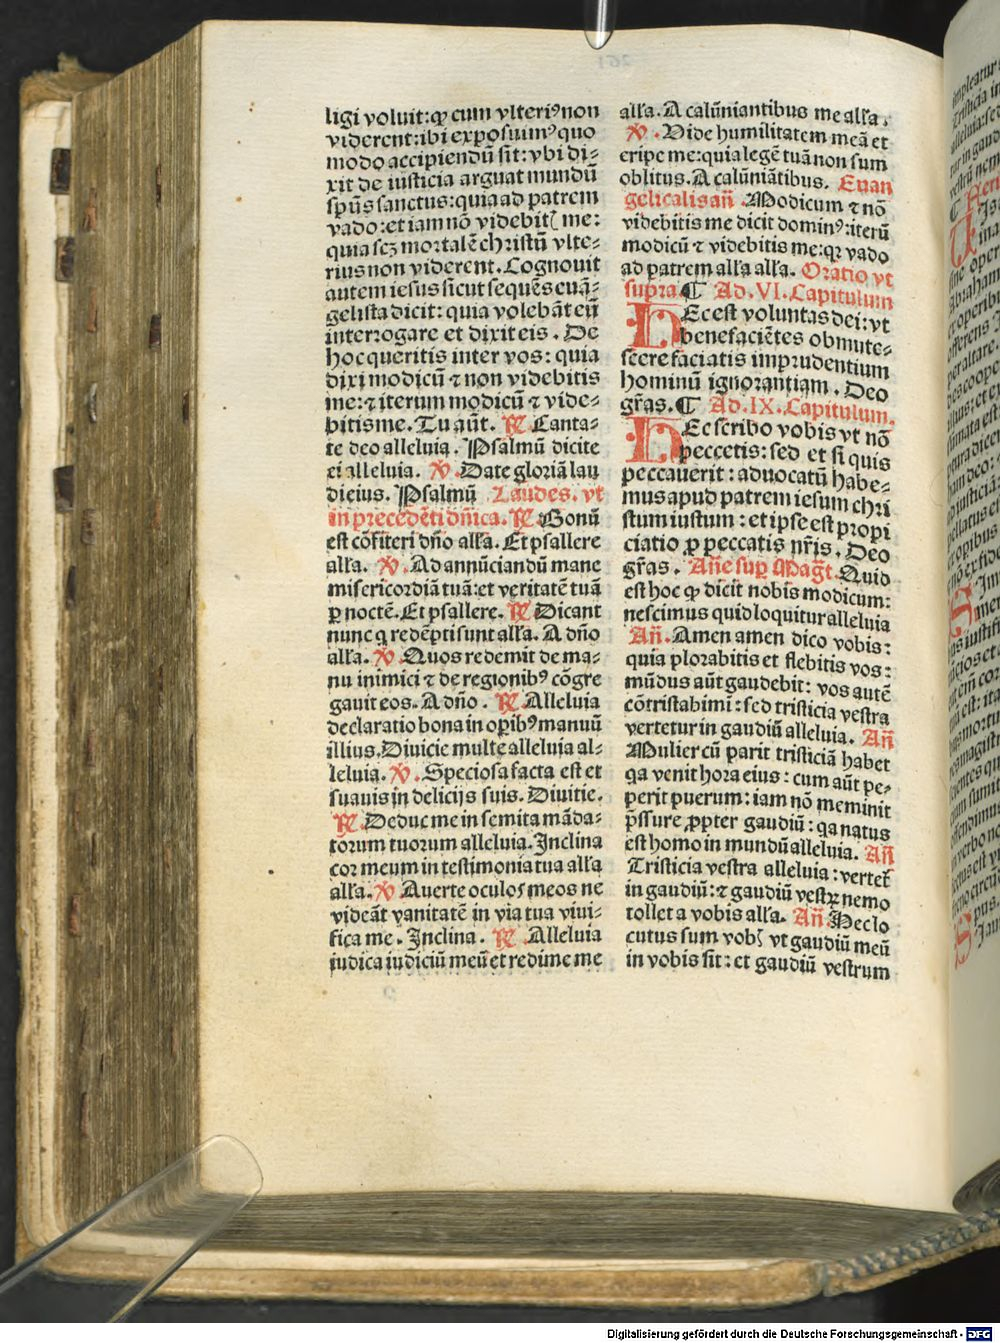 ligi voluit: ꝙ cum vlteriꝰ non
viderent: ibi exposuimꝰ quo
modo accipiendū sit: vbi di-
xit de iusticia arguat mundū
spūs sanctus: quia ad patrem
vado: et iam nō videbitꝭ me:
quia scꝫ mortalē christū vlte-
rius non viderent. Cognouit
autem iesus sicut sequēs euā-
gelista dicit: quia volebāt eū
interrogare et dixit eis. De
hoc queritis inter vos: quia
dixi modicū ⁊ non videbitis
me: ⁊ iterum modicū ⁊ vide-
bitis me. Tu aūt. ℟ Canta-
te deo alleluia. Psalmū dicite
ei alleluia. ℣. Date gloriā lau
di eius. Psalmū Laudes. vt
in precedēti dn̄ica. ℟. Bonū
est cōfiteri dn̄o alľa. Et psallere
alľa. ℣. Ad annūciandū mane
misericordiā tuā: et veritatē tuā
ꝑ noctē. Et psallere. ℟ Dicant
nunc q̄ redēpti sunt alľa. A dn̄o
alľa. ℣. Quos redemit de ma-
nu inimici ⁊ de regionibꝰ cōgre
gauit eos. A dn̄o. ℟. Alleluia
declaratio bona in oꝑibꝰ manuū
illius. Diuicie multe alleluia al-
leluia. ℣. Speciosa facta est et
suauis in delicijs suis. Diuitie.
℟. Deduc me in semita māda-
torum tuorum alleluia. Inclina
cor meum in testimonia tua alľa
alľa. ℣. Auerte oculoꝭ meos ne
videāt vanitatē in via tua viui-
fica me. Inclina. ℟. Alleluia
iudica iudiciū meū et redime me
alľa. A calūniantibus me alľa.
℣. Vide humilitatem meā et
eripe me: quia legē tuā non sum
oblitus. A calūniātibus. Euan
gelicalis an̄. Modicum ⁊ nō
videbitis me dicit dominꝰ: iterū
modicū ⁊ videbitis me: qꝛ vado
ad patrem alľa alľa. Oratio vt
supra. ¶ Ad. VI. Capitulum
Hec est voluntas dei: vt
benefaciētes obmute-
scere faciatis imprudentium
hominū ignorantiam. Deo
gr̄as. ¶ Ad. IX. Capitulum.
Hec scribo vobis vt nō
peccetis: sed et si quis
peccauerit: aduocatū habe-
mus apud patrem iesum chri
stum iustum: et ipse est propi
ciatio ꝓ peccatis nr̄is. Deo
gr̄as. An̄e suꝑ Magt̄. Quid
est hoc ꝙ dicit nobis modicum:
nescimus quid loquitur alleluia
An̄. Amen amen dico vobis:
quia plorabitis et flebitis vos:
mūdus aūt gaudebit: vos autē
cōtristabimī: sed tristicia vestra
vertetur in gaudiū alleluia. An̄
Mulier cū parit tristiciā habet
qa venit hora eius: cum aūt pe-
perit puerum: iam nō meminit
p̄ssure ꝓpter gaudiū: qa natus
est homo in mundū alleluia. An̄
Tristicia vestra alleluia: vertet᷑
in gaudiū: ⁊ gaudiū vestrꝝ nemo
tollet a vobis alľa. An̄. Hec lo
cutus sum vobꝭ vt gaudiū meū
in vobis sit: et gaudiū vestrum
Digitalisierung gefördert durch die Deutsche Forschungsgemeinschaft - DFG